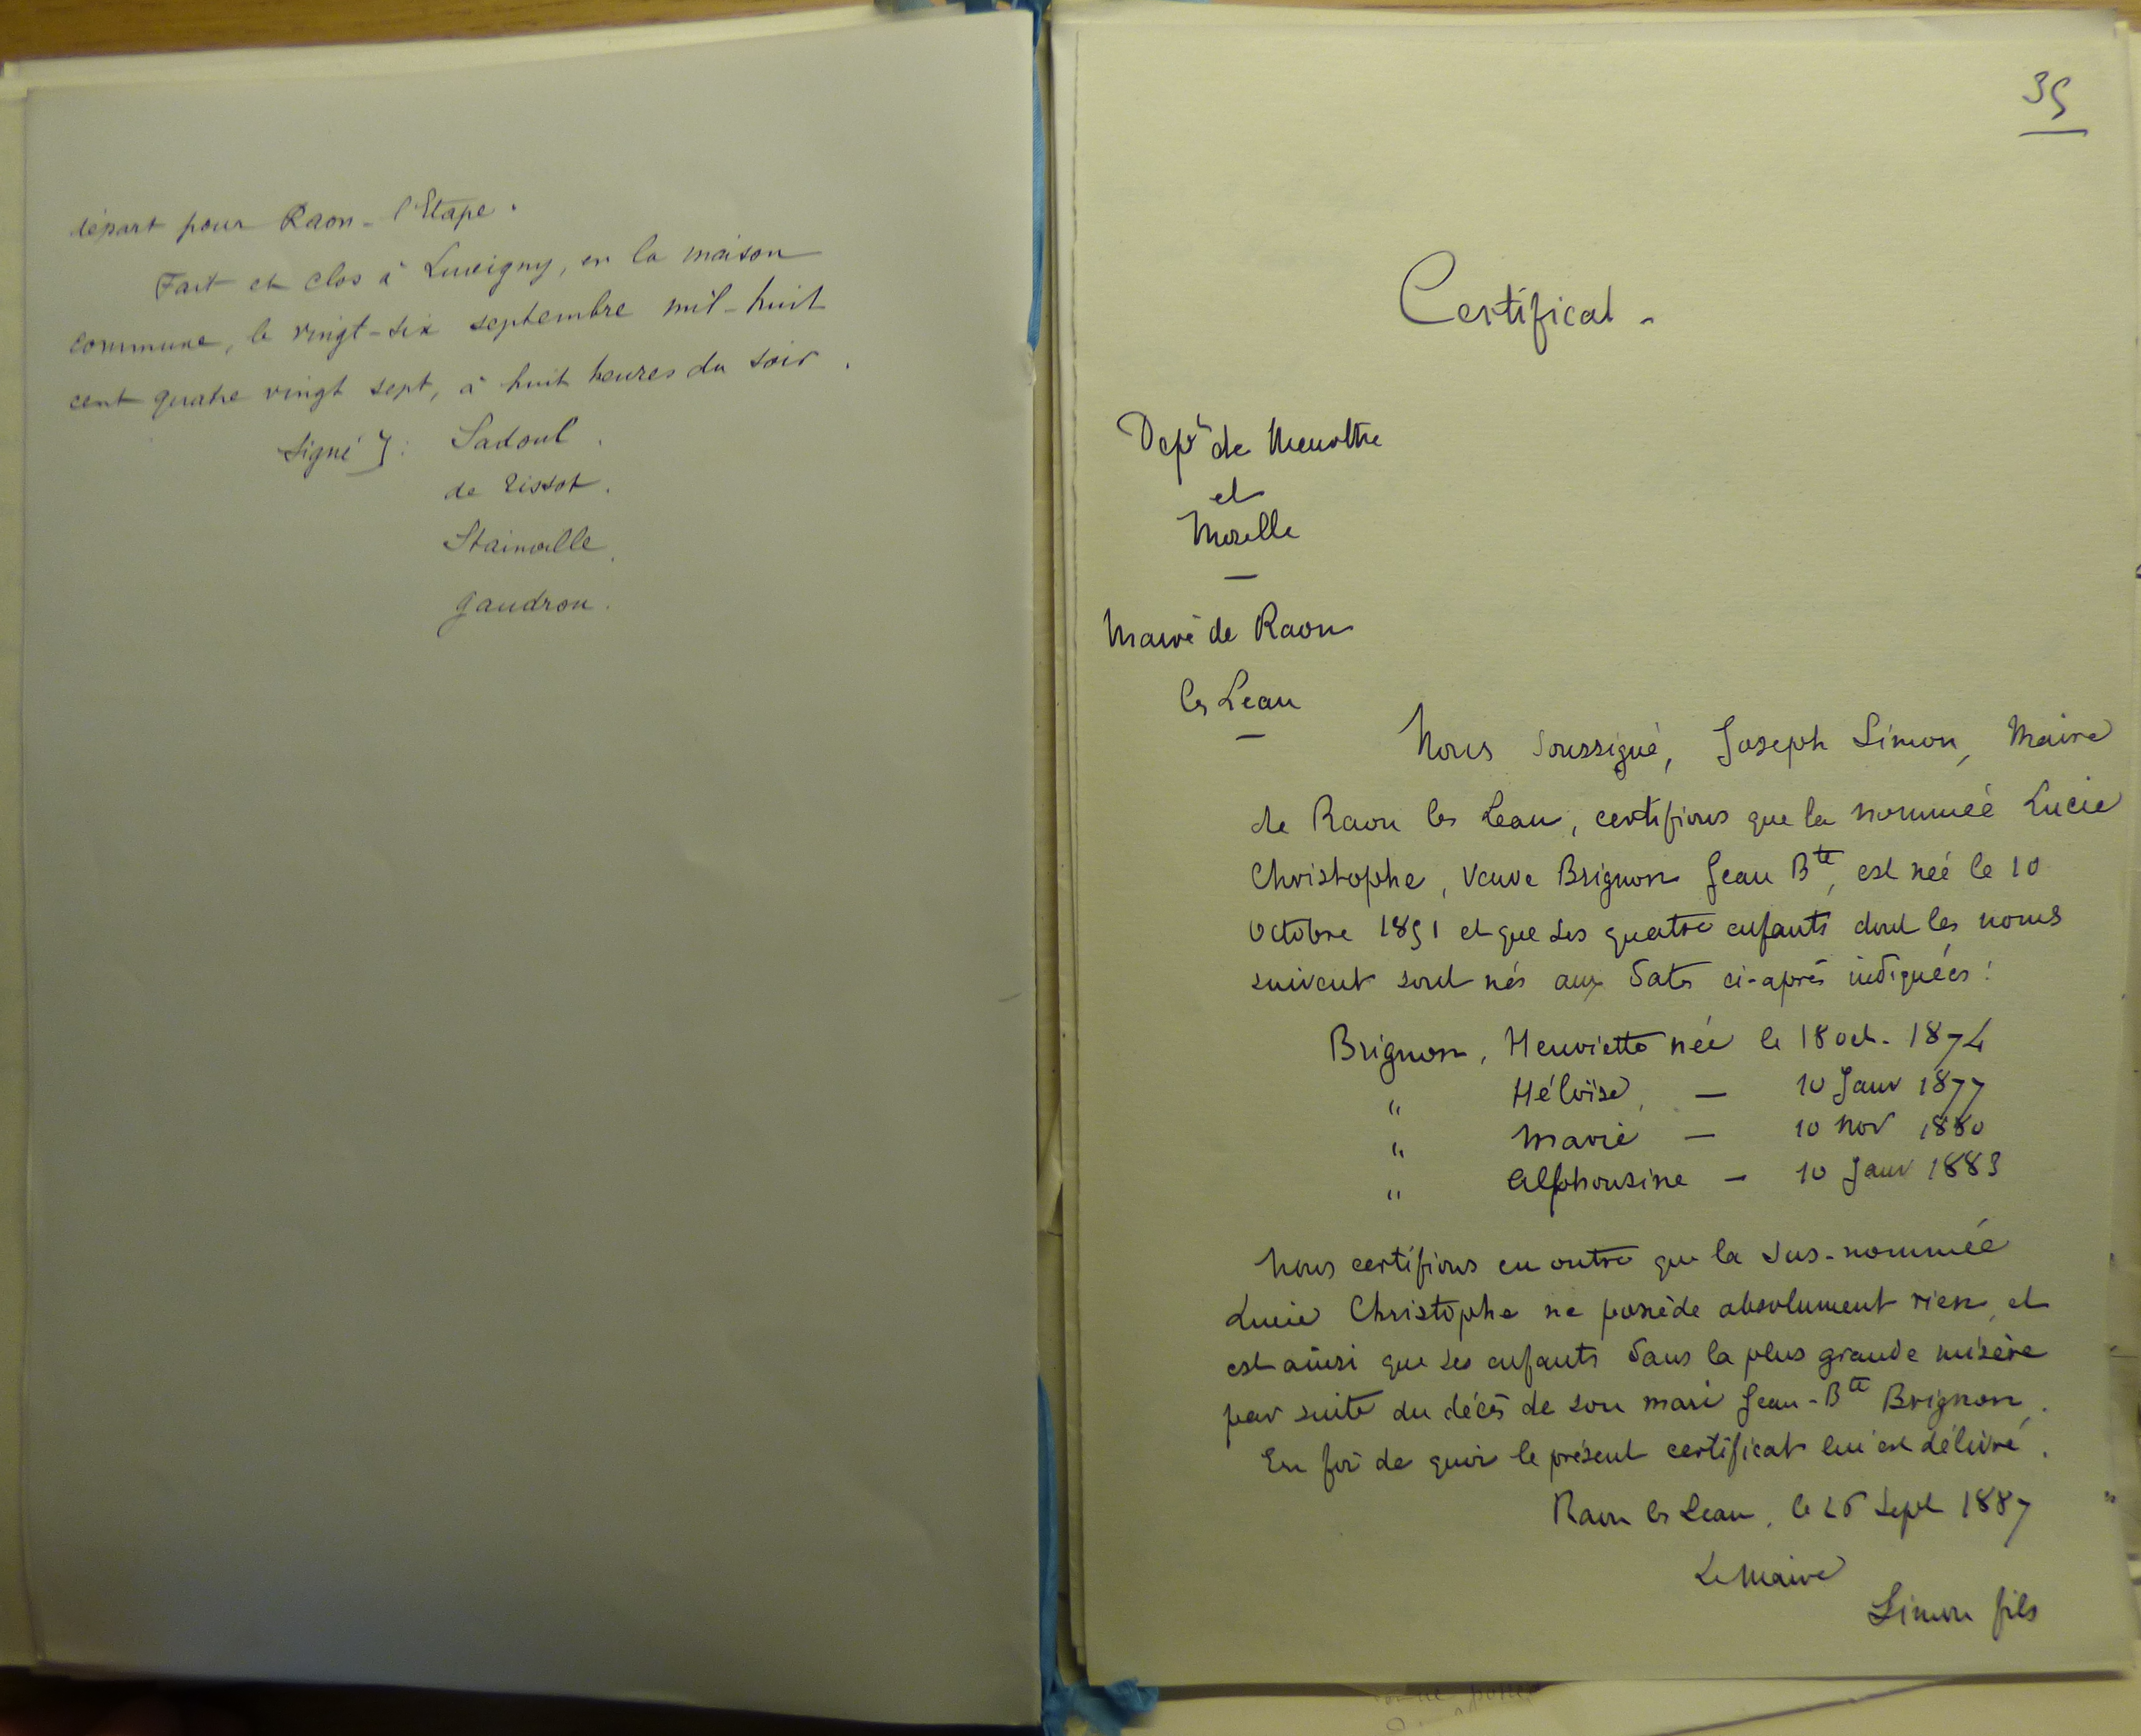 départ pour Raon-l'Etape.
Fait et clos à Luvigny, en la maison
commune, le vingt-six septembre mil-huit
cent quatre vingt sept, à huit heures du soir.
Signé]: Sadoul.
de Tissot.
Stainville.
Gaudron.
35
Certificat.
Dept de Meurthe
et
Moselle
Mairie de Raon
les Leau
Nous soussigné, Joseph Simon, Maire
de Raon les Leau, certifions que la nommée Lucie
Christophe, Veuve Brignon Jean Bte, est née le 10
Octobre 1851 et que ses quatre enfants dont les noms
suivent sont nés aux dates ci-après indiquées:
Brignon, Henriette née le 18 oct. 1874
" Héloïse, — 10 Janv 1877
" Marie — 10 Nov 1880
" Alphonsine — 10 Janv 1883
Nous certifions en outre que la sus-nommée
Lucie Christophe ne possède absolument rien, et
est ainsi que ses enfants dans la plus grande misère
par suite du décès de son mari Jean-Bte Brignon.
En foi de quoi le présent certificat lui est délivré.
Raon les Leau, le 26 Sept 1887
Le Maire
Simon fils